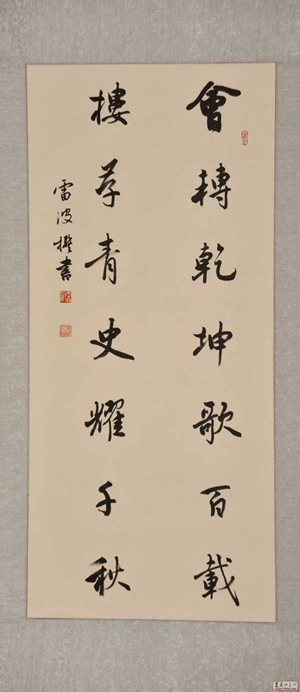 會轉乾坤歌百載
樓存青史耀千秋
雷波撰書